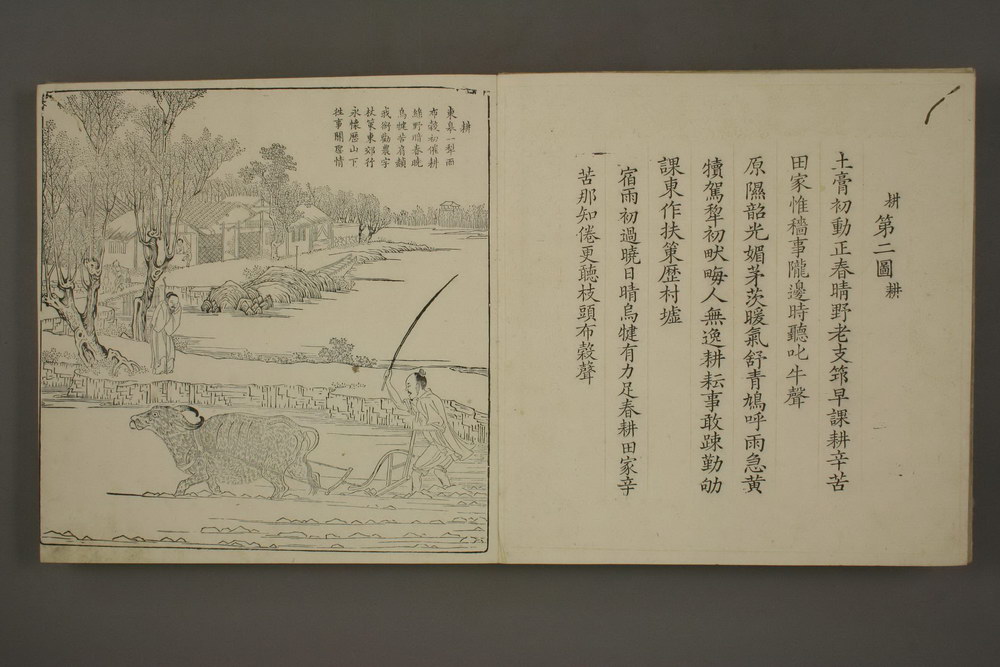 耕 第二圖 耕
土膏初動正春晴野老支筇早課耕辛苦
田家惟穡事隴邊時聽叱牛聲
原隰韶光媚茅茨暖氣舒青鳩呼雨急黃
犢駕犂初畎畮人無逸耕耘事敢踈勤劬
課東作扶策歷村墟
宿雨初過曉日晴烏犍有力足春耕田家辛
苦那知倦更聽枝頭布穀聲
耕
東皋一犂雨
布穀初催耕
綠野暗春曉
烏犍苦肩赬
我銜勸農字
杖策東郊行
永懷歷山下
往事關聖情